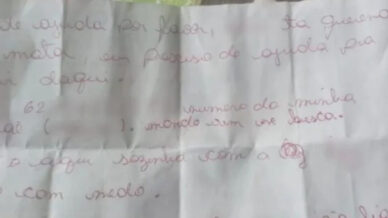 de ajuda por favor, Ta querendo
mata, eu preciso de ajuda pra
daqui.
62
numero da minha
( ). mande vim me busca.
aqui sozinha com a
com medo.